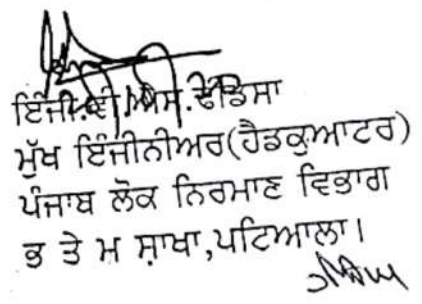 ਇੰਜੀ.ਵੀ.ਐਸ.ਢੀਂਡਸਾ
ਮੁੱਖ ਇੰਜੀਨੀਅਰ(ਹੈਡਕੁਆਟਰ)
ਪੰਜਾਬ ਲੋਕ ਨਿਰਮਾਣ ਵਿਭਾਗ
ਭ ਤੇ ਮ ਸ਼ਾਖਾ,ਪਟਿਆਲਾ।